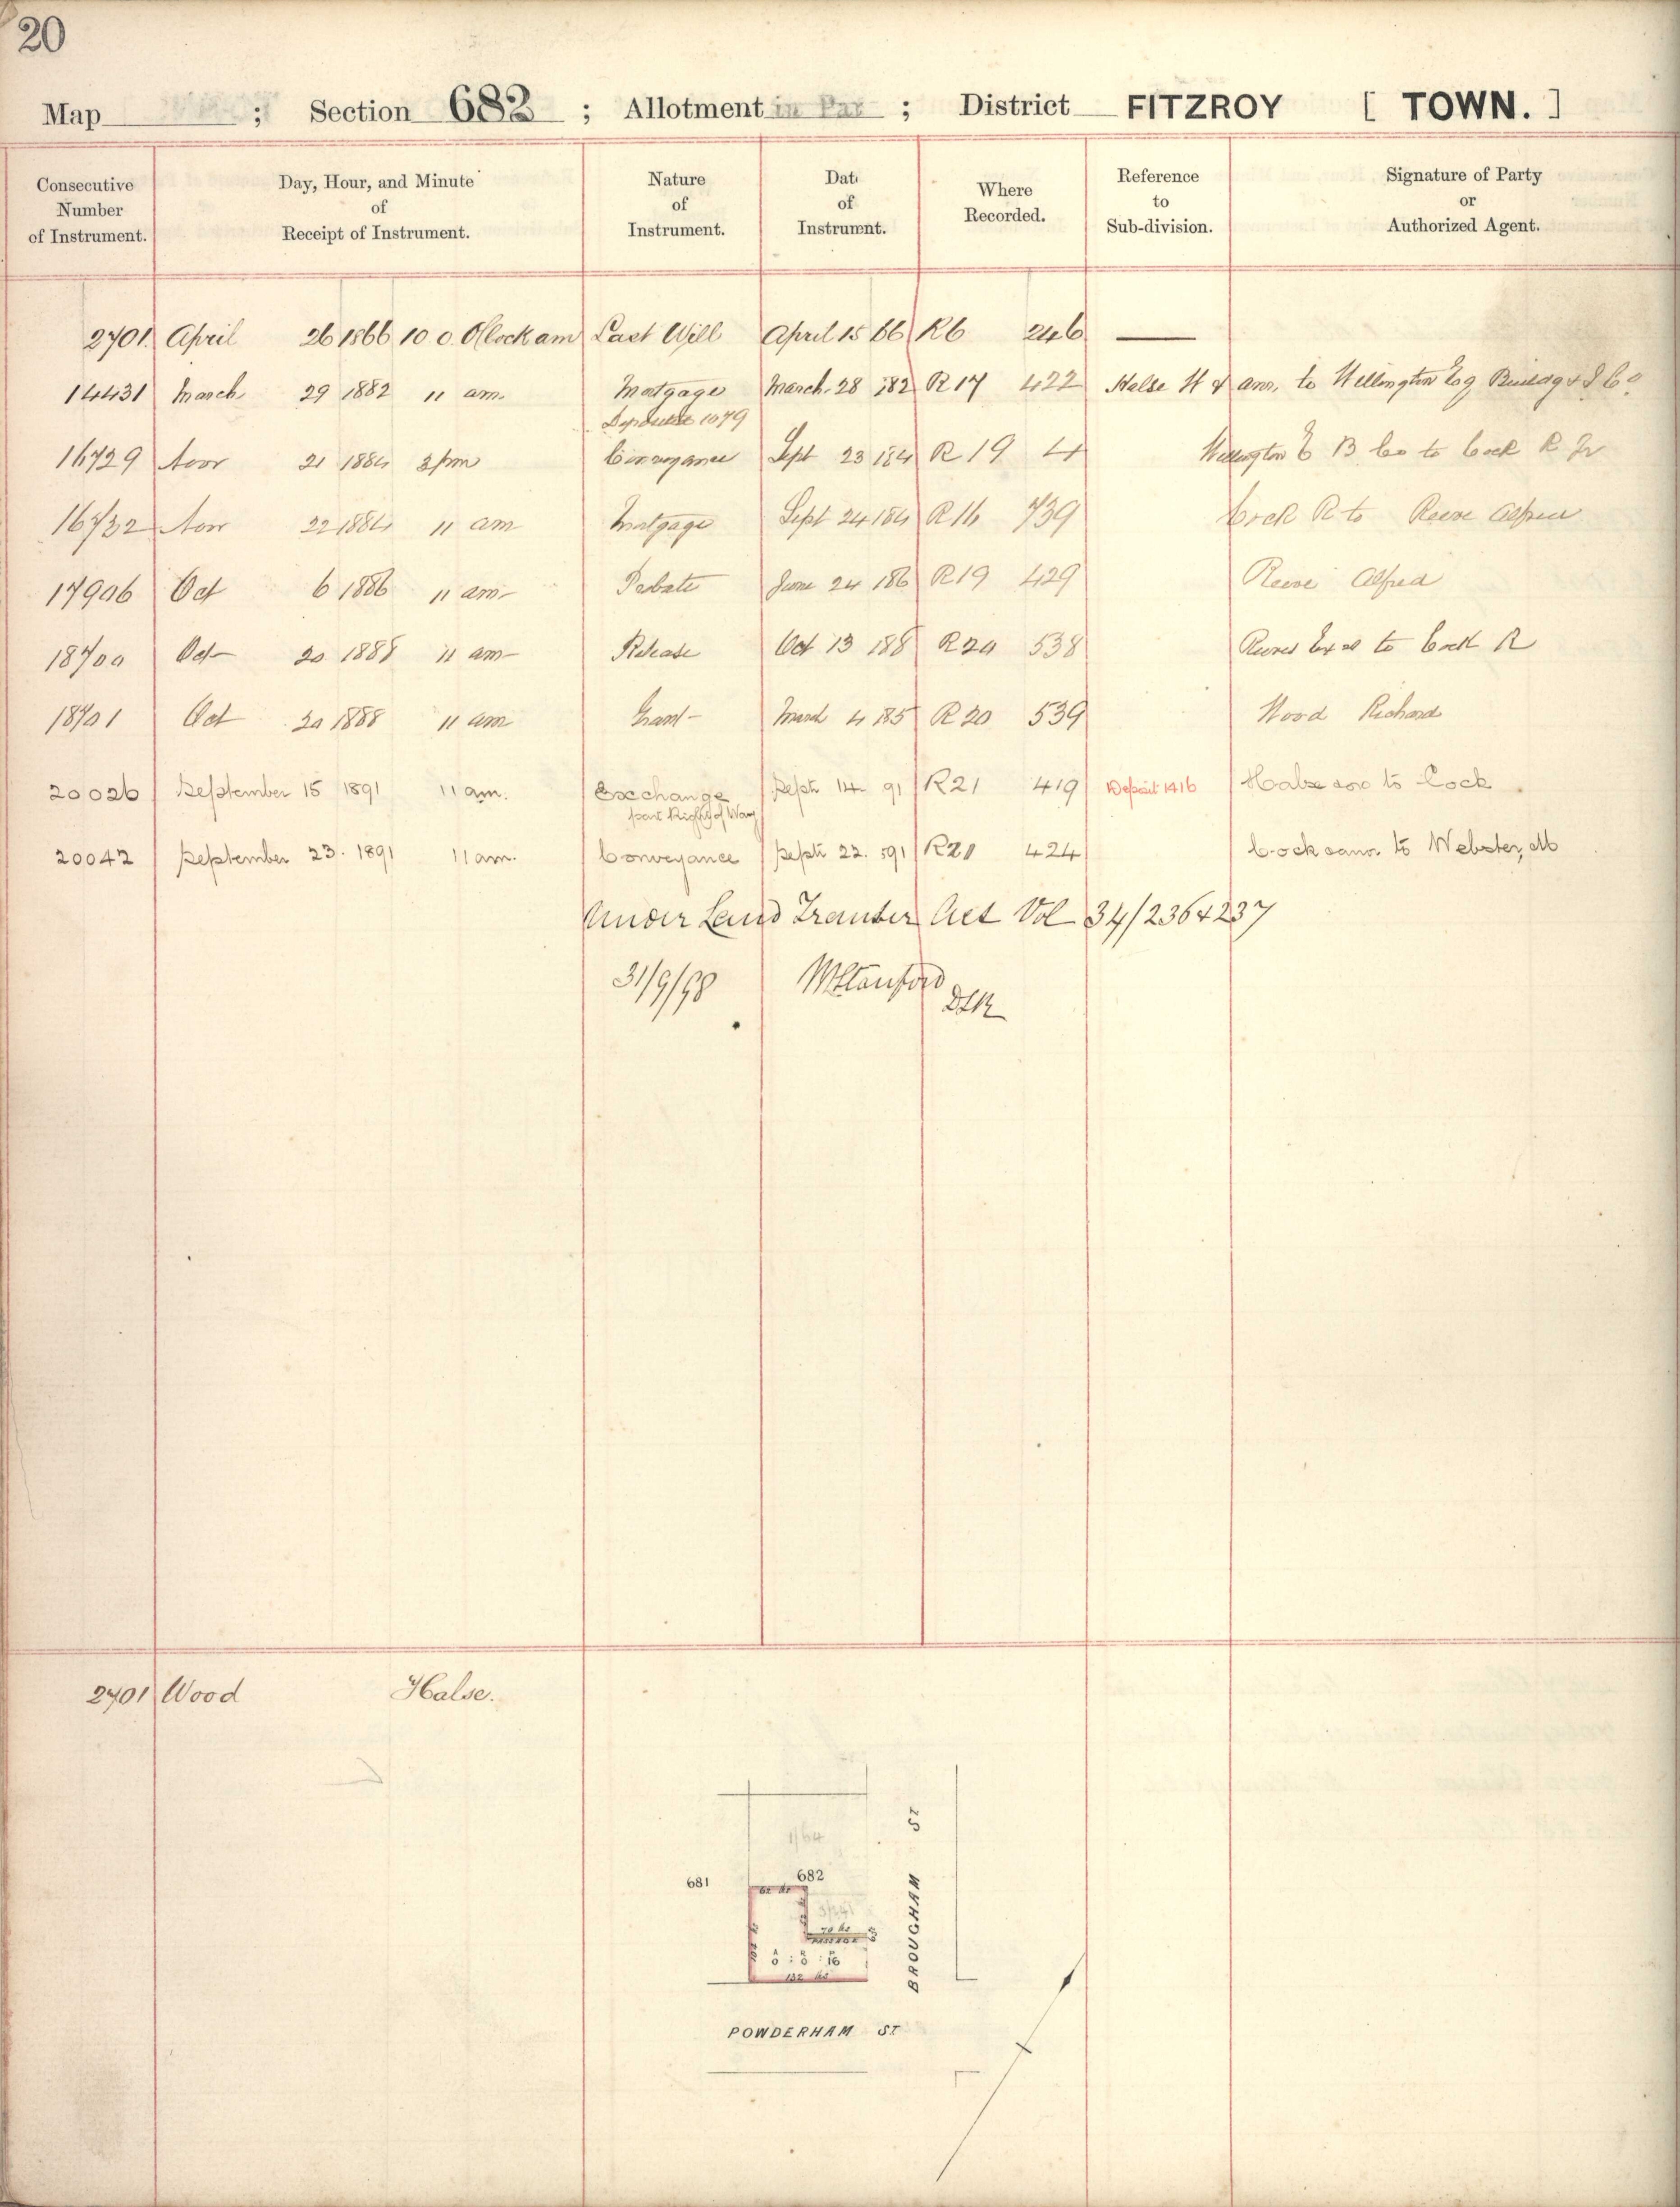 20
Map ; Section 682 ; Allotment in Par ; District FITZROY [ TOWN. ]
Consecutive Number of Instrument.
Day, Hour, and Minute of Receipt of Instrument.
Nature of Instrument.
Dat of Instrumnt.
Where Recorded.
Reference to Sub-division.
Signature of Party or Authorized Agent.
2701 April 26 1866 10 o. Clock am Last Will April 15 66 R6 246
14431 March 29 1882 11 am. Mortgage March 28 182 R17 422 Halse W & anr. to Wellington Eq Buildg & I Co
1079
16729 Novr 21 1884 3pm Conveyance Sept 23 184 R19 4 Wellington E B Co to Cock R Jr
16732 Novr 22 1884 11 am Mortgage Sept 24 184 R16 739 Cock R to Reeve Alfred
17906 Oct 6 1886 11 am Probate June 24 186 R19 429 Reeve Alfred
18700 Oct 20 1888 11 am Release Oct 13 188 R20 538 Reeves Exes to Cock R
18701 Oct 20 1888 11 am Grant March 4 185 R20 539 Wood Richard
20026 September 15 1891 11 am. Exchange Septr 14 91 R21 419 Deposit 1416 Halse ano to Cock
part Right of Way
20042 September 23. 1891 11 am. Conveyance Septr 22. 91 R21 424 Cock & anr. to Webster, M
Under Land Transfer Act Vol 34/236 & 237
31/9/98 W Stanford
DLR
2701 Wood Halse.
1/64
681
682
62 lks
70 lks
PASSAGE
0 : 0 : 16
132 lks
BROUGHAM ST
POWDERHAM ST